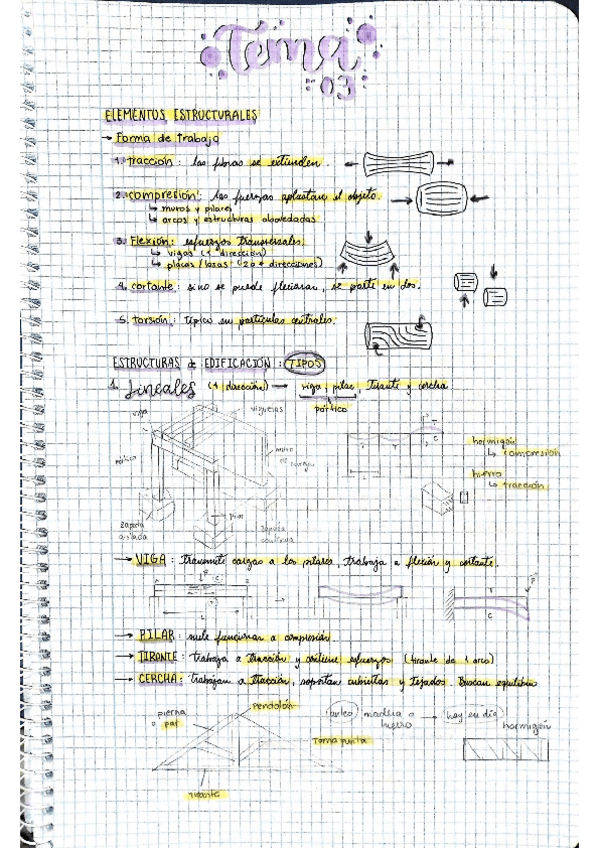 Tema
03
ELEMENTOS ESTRUCTURALES
→ Forma de trabajo
1. tracción: las fibras se extienden.
2. compresión: las fuerzas aplastan el objeto.
↳ muros y pilares
↳ arcos y estructuras abovedadas
3. Flexión: esfuerzos transversales.
↳ vigas (1 dirección)
↳ placas/losas (2 o + direcciones)
4. cortante: si no se puede flexionar, se parte en dos.
5. torsión: típico en partículas centrales.
ESTRUCTURAS de EDIFICACIÓN: TIPOS
1. Lineales (1 dirección) → viga, pilar, tirante y cercha
pórtico
viga
viguetas
pórtico
muro de cargas
hormigón
↳ compresión
hierro
↳ tracción
T
C
pilar
zapata aislada
zapata continua
→ VIGA: transmite cargas a los pilares, trabaja a flexión y cortante.
→ PILAR: suele funcionar a compresión.
→ TIRANTE: trabaja a tracción y contiene esfuerzos (tirante de 1 arco)
→ CERCHA: trabajan a tracción, soportan cubiertas y tejados. Buscan equilibrio
pendolón
pierna
par
tirante
madera o hierro → hoy en día hormigón